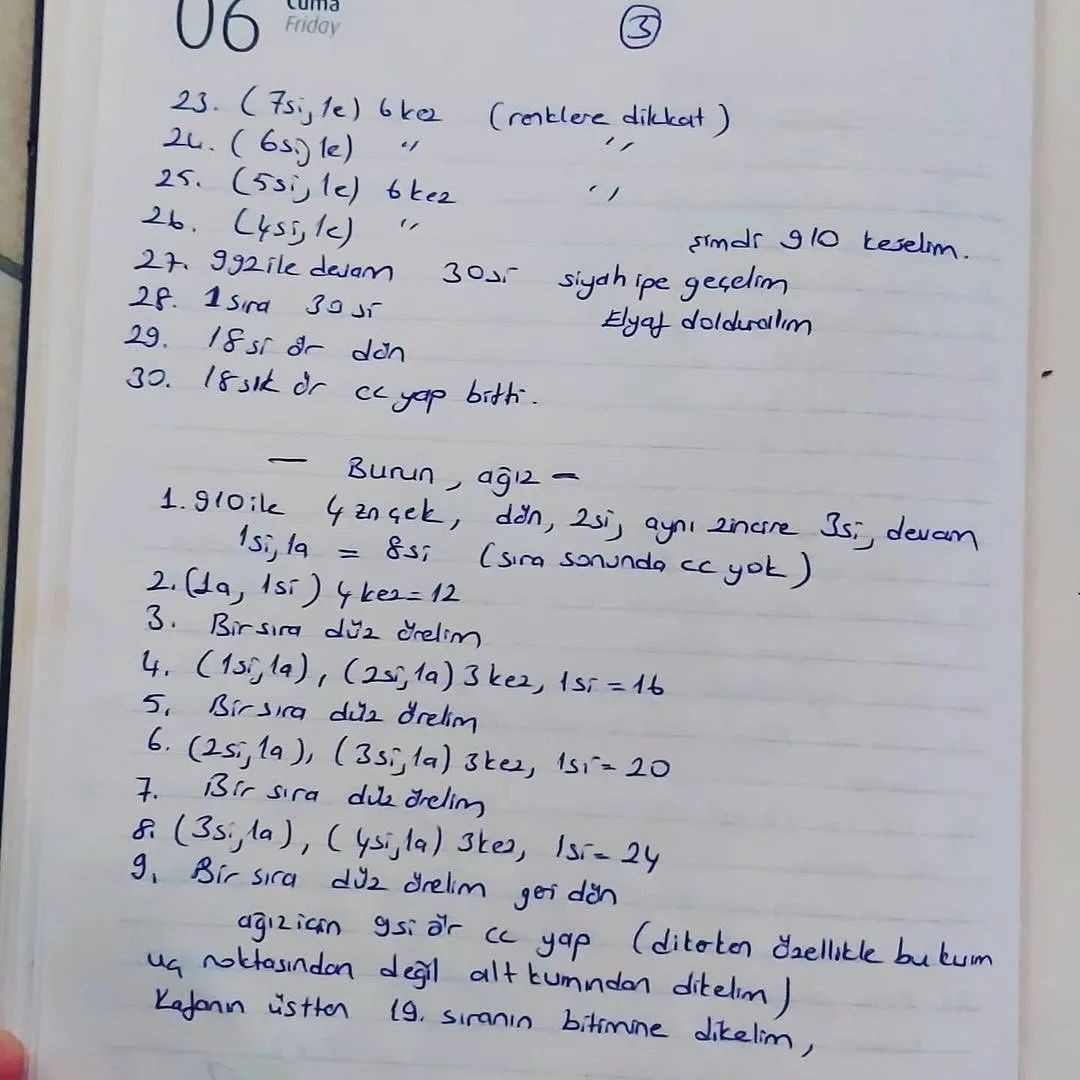 06 Cuma
Friday
3
23. (7si, 1e) 6 kez (renklere dikkat)
24. (6si, 1e) " "
25. (5si, 1e) 6 kez "
26. (4si, 1e) "
şimdi 910 keselim.
27. 992 ile devam 30si siyah ipe geçelim
28. 1 sıra 30 si
Elyaf dolduralım
29. 18 si ör dön
30. 18 sık ör cc yap bitti.
— Burun, ağız —
1. 910 ile 4 zn çek, dön, 2si, aynı zincire 3si, devam
1si, 1a = 8si (sıra sonunda cc yok)
2. (1a, 1si) 4 kez = 12
3. Bir sıra düz örelim
4. (1si, 1a), (2si, 1a) 3 kez, 1si = 16
5. Bir sıra düz örelim
6. (2si, 1a), (3si, 1a) 3 kez, 1si = 20
7. Bir sıra düz örelim
8. (3si, 1a), (4si, 1a) 3kez, 1si = 24
9. Bir sıra düz örelim geri dön
ağız için 9si ör cc yap (dikerken özellikle bu kısım
uç noktasından değil alt kısmından dikelim)
Kafanın üstten 19. sıranın bitimine dikelim,